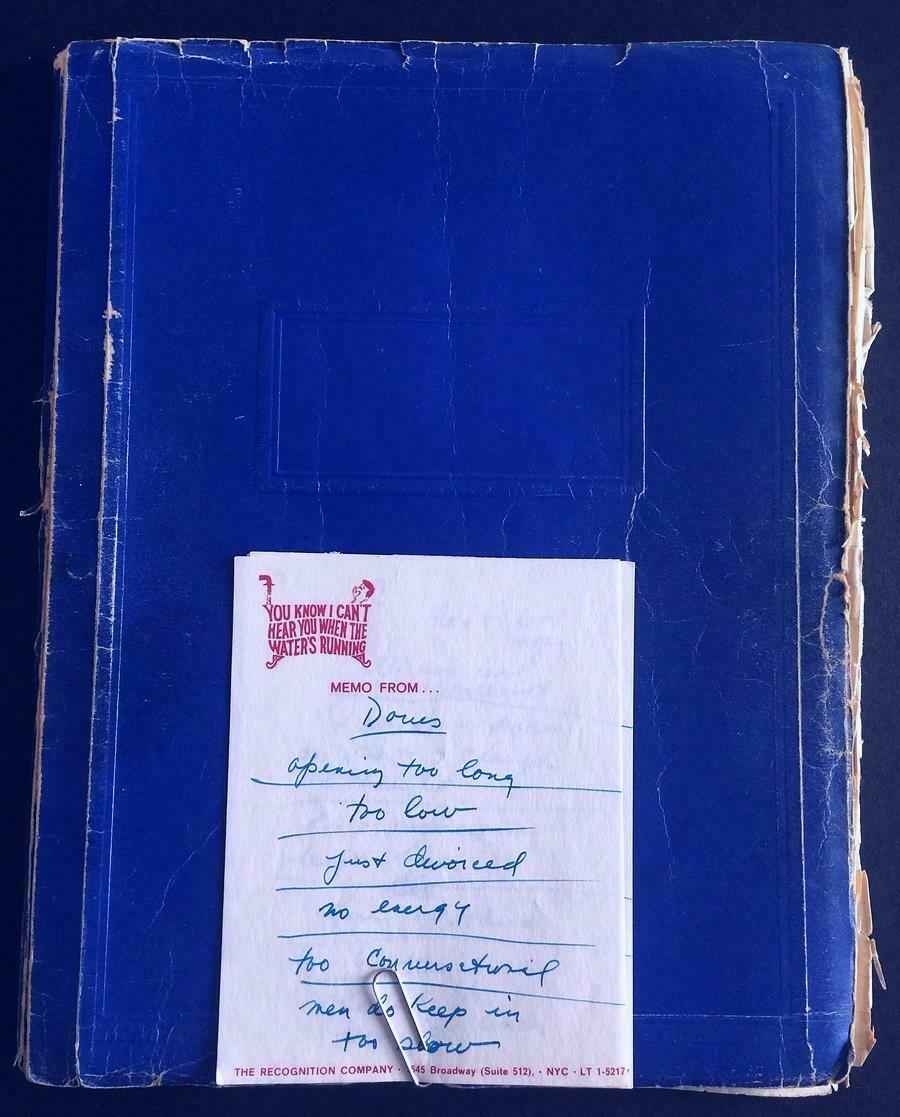 YOU KNOW I CAN'T
HEAR YOU WHEN THE
WATER'S RUNNING
MEMO FROM...
opening too long
too low
just divorced
no energy
too conversational
men do keep in
too slow
THE RECOGNITION COMPANY · 1545 Broadway (Suite 512), · NYC · LT 1-5217